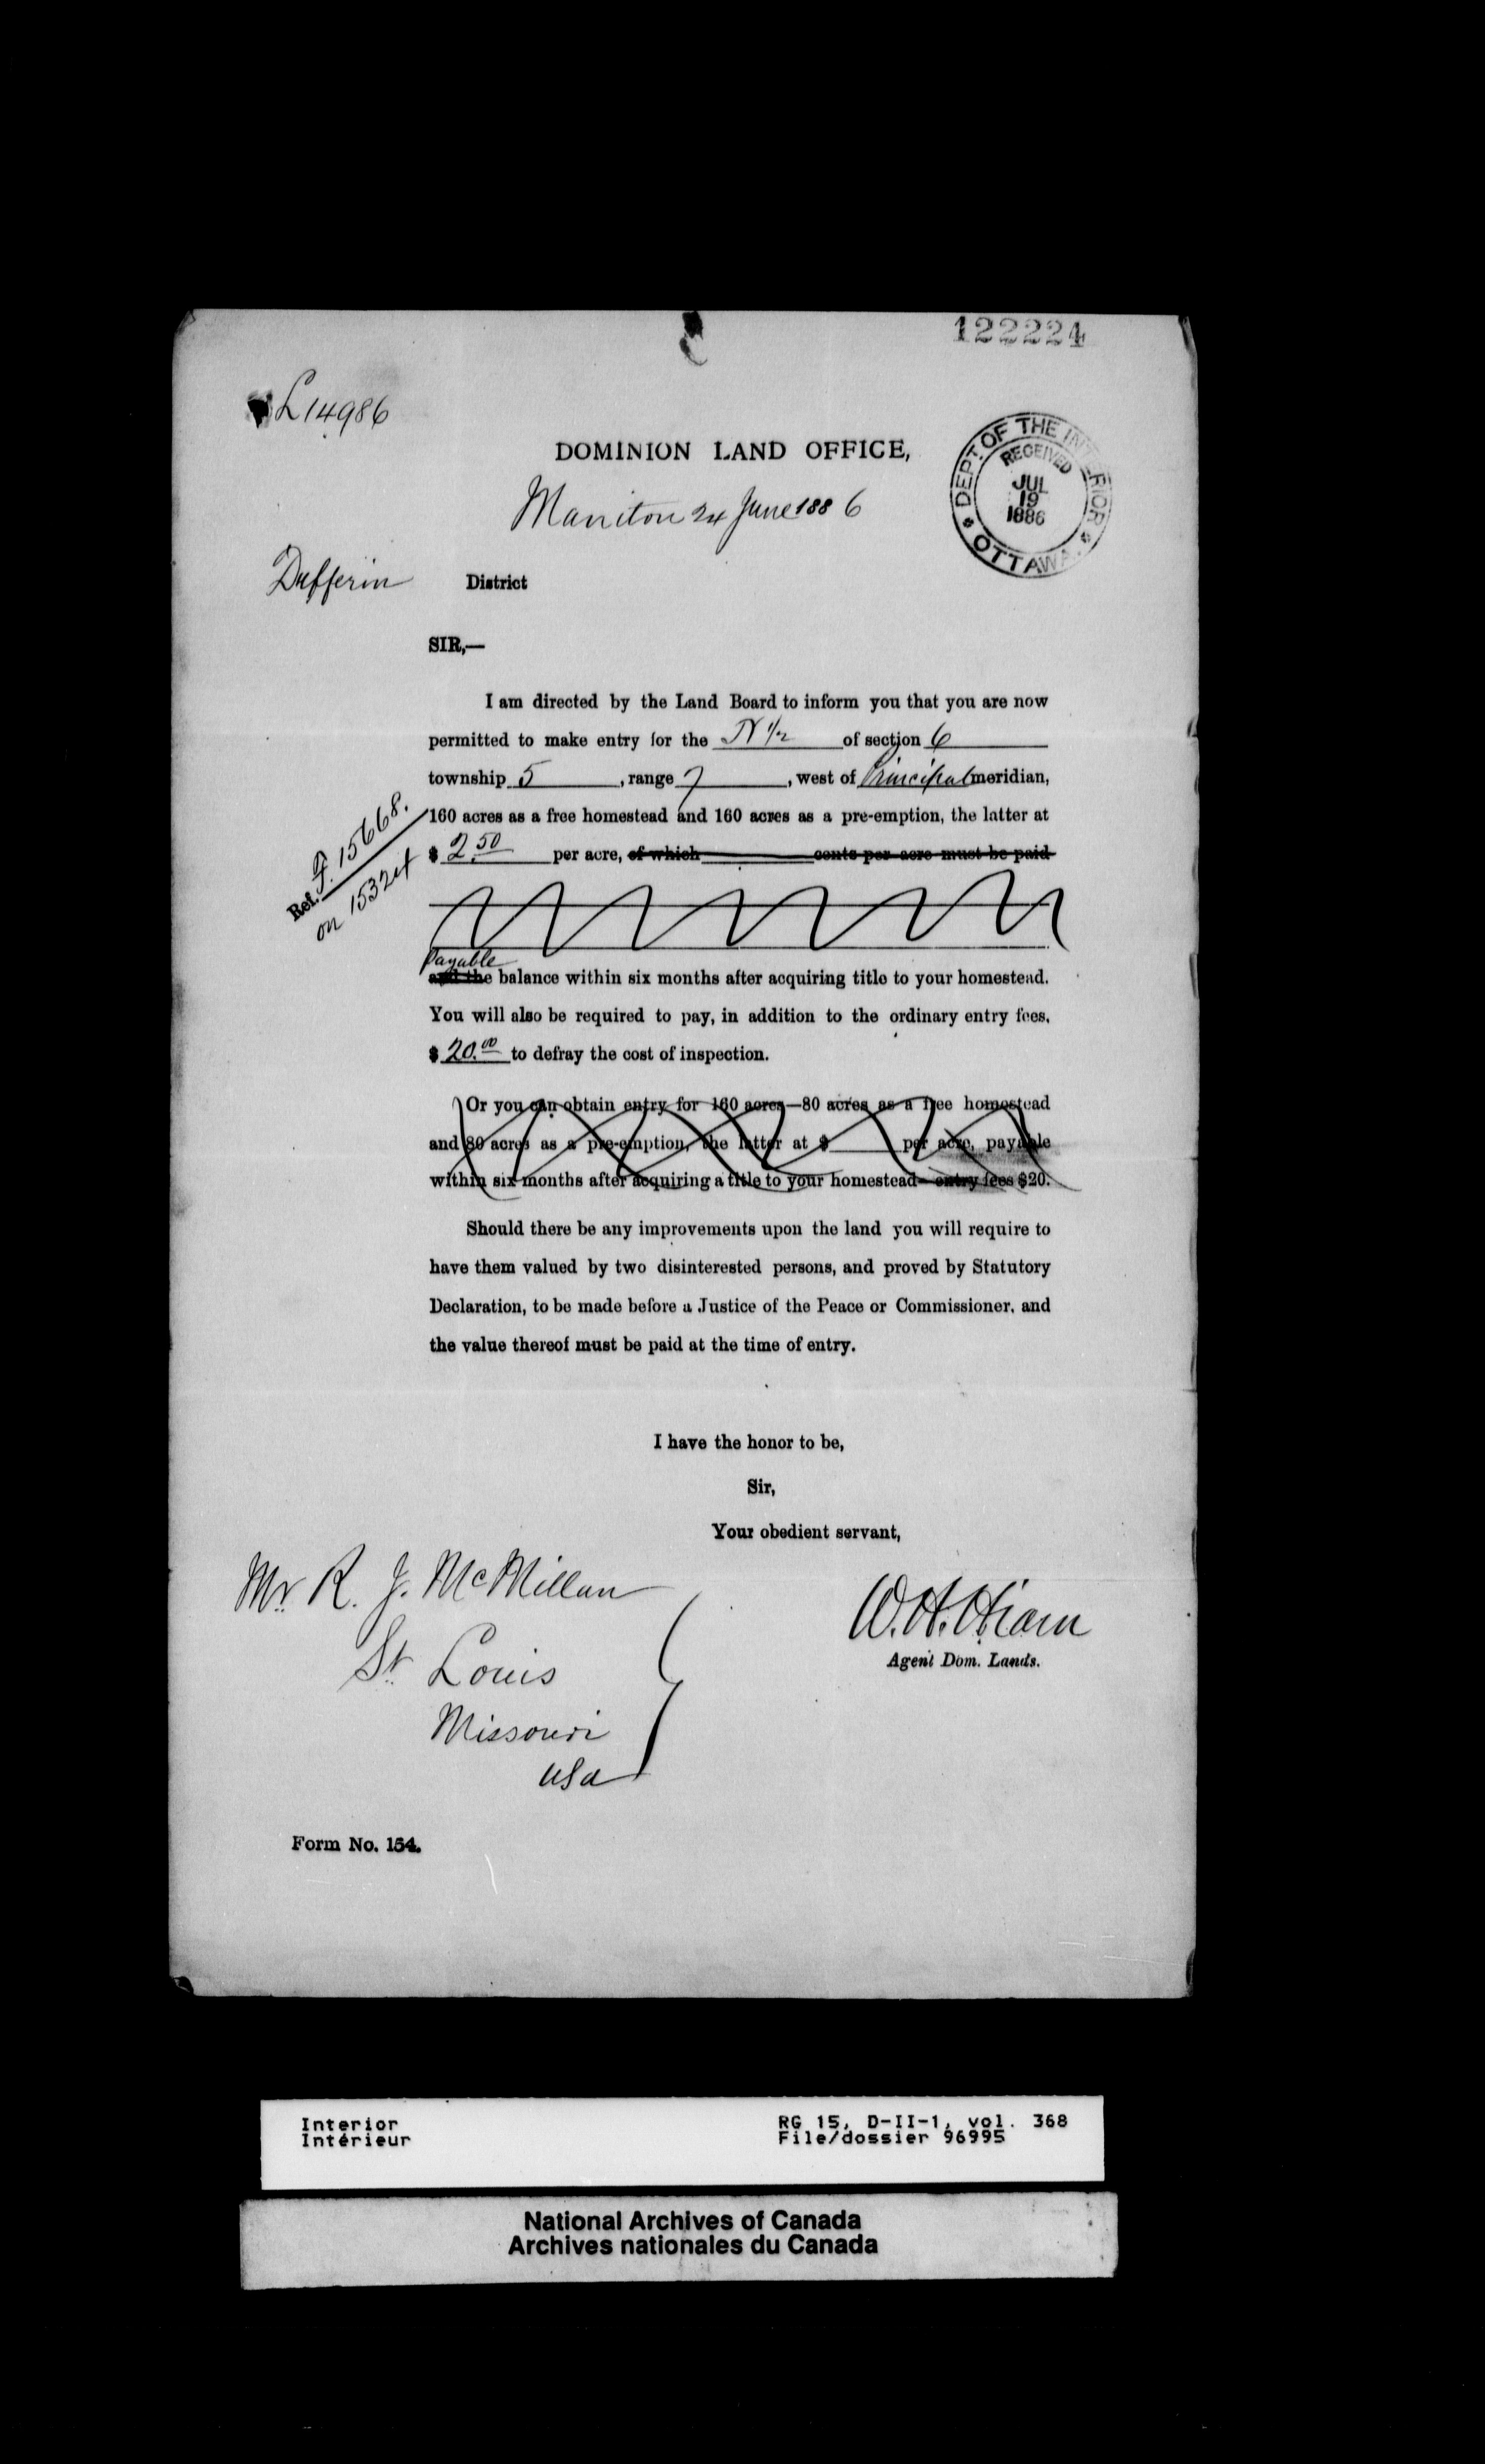 122224
L 14986
DOMINION LAND OFFICE,
Maniton 24 June 1886
DEPT. OF THE INTERIOR
RECEIVED
JUL
19
1886
OTTAWA
Dufferin District
SIR,—
I am directed by the Land Board to inform you that you are now
permitted to make entry for the N 1/2 of section 6
township 5, range 7, west of Principal meridian,
160 acres as a free homestead and 160 acres as a pre-emption, the latter at
$ 2.50 per acre, of which cents per acre must be paid
Ref. F. 15668.
on 15324
Payable
and the balance within six months after acquiring title to your homestead.
You will also be required to pay, in addition to the ordinary entry fees,
$ 20.00 to defray the cost of inspection.
Or you can obtain entry for 160 acres—80 acres as a free homestead
and 80 acres as a pre-emption, the latter at $ per acre, payable
within six months after acquiring a title to your homestead—entry fees $20.
Should there be any improvements upon the land you will require to
have them valued by two disinterested persons, and proved by Statutory
Declaration, to be made before a Justice of the Peace or Commissioner, and
the value thereof must be paid at the time of entry.
I have the honor to be,
Sir,
Your obedient servant,
Mr. R. J. McMillan
St. Louis
Missouri
USA
W. H. Hiam
Agent Dom. Lands.
Form No. 154.
Interior
Intérieur
RG 15, D-II-1, vol. 368
File/dossier 96995
National Archives of Canada
Archives nationales du Canada